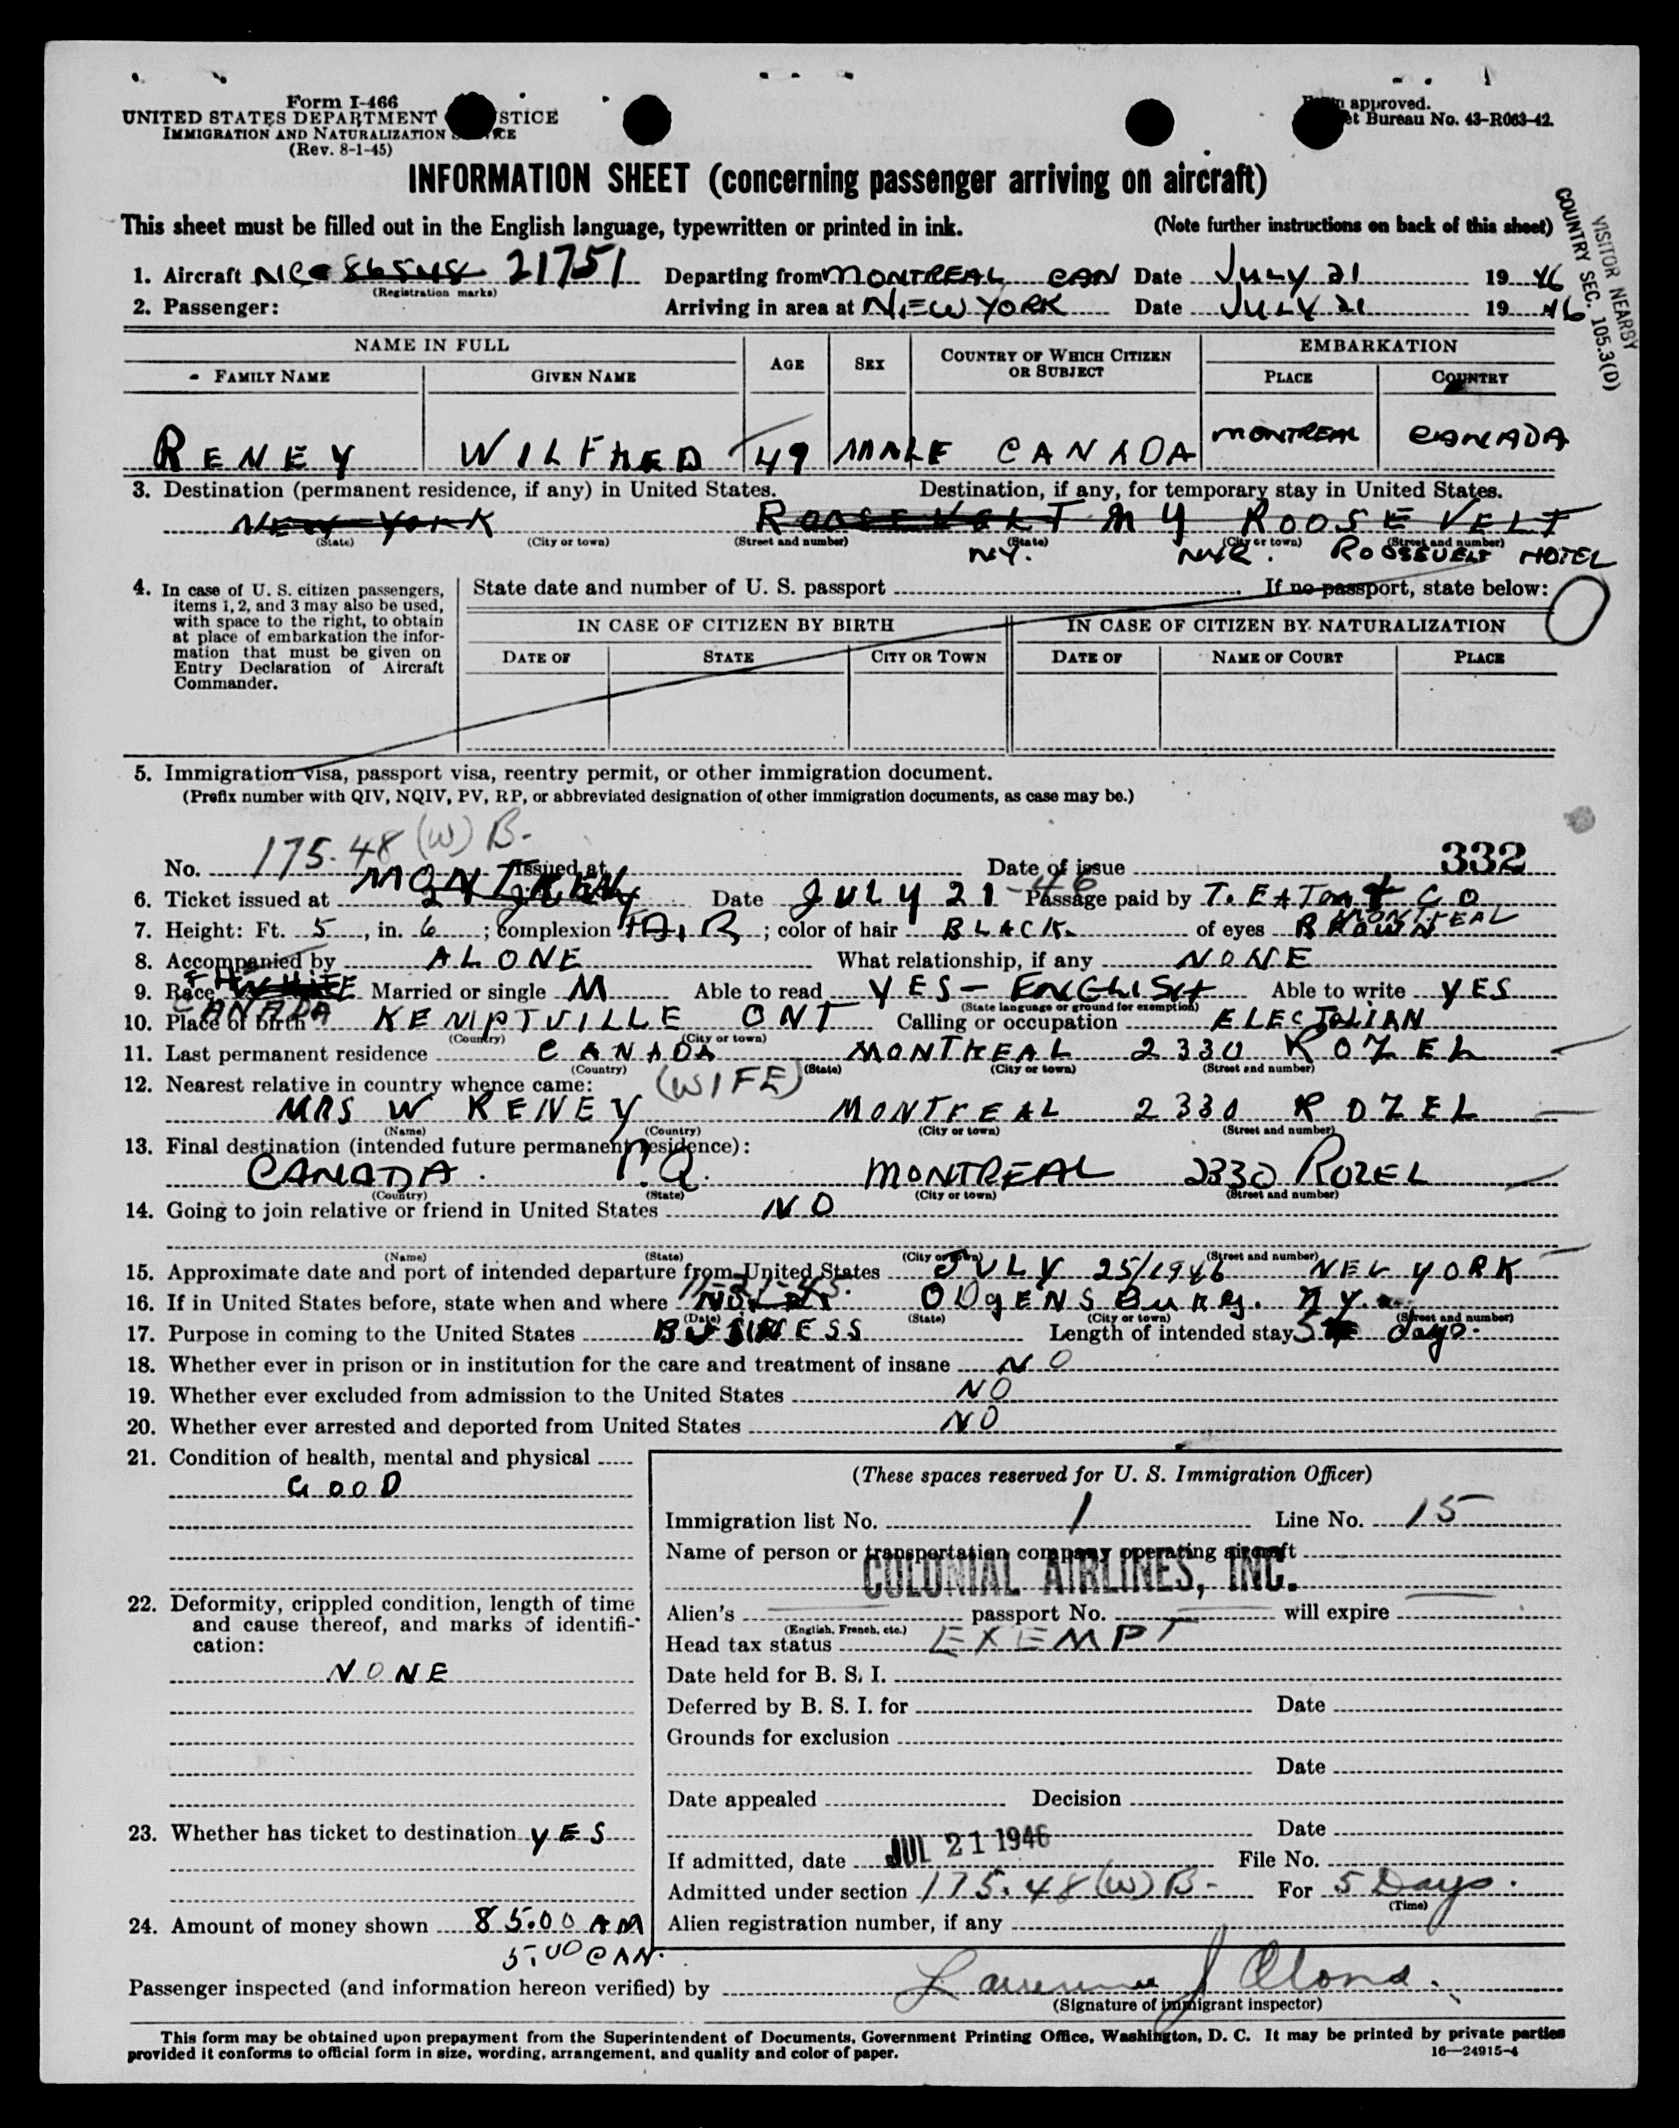 Form I-466
UNITED STATES DEPARTMENT STICE
IMMIGRATION AND NATURALIZATION
(Rev. 8-1-45)
approved.
et Bureau No. 43-R063-42.
INFORMATION SHEET (concerning passenger arriving on aircraft)
This sheet must be filled out in the English language, typewritten or printed in ink. (Note further instructions on back of this sheet)
VISITOR NEARBY
COUNTRY SEC. 105.3(D)
1. Aircraft NC 86548 21751 Departing from MONTREAL CAN Date JULY 21 1946
(Registration marks)
2. Passenger: Arriving in area at NEW YORK Date JULY 21 1946
NAME IN FULL AGE SEX COUNTRY OF WHICH CITIZEN OR SUBJECT EMBARKATION
FAMILY NAME GIVEN NAME PLACE COUNTRY
RENEY WILFRED 49 MALE CANADA MONTREAL CANADA
3. Destination (permanent residence, if any) in United States. Destination, if any, for temporary stay in United States.
NEW YORK ROOSEVELT NY ROOSEVELT
(State) (City or town) (Street and number) (State) (City or town) (Street and number)
NY. NYC. ROOSEVELT HOTEL
4. In case of U. S. citizen passengers, items 1, 2, and 3 may also be used, with space to the right, to obtain at place of embarkation the information that must be given on Entry Declaration of Aircraft Commander.
State date and number of U. S. passport If no passport, state below:
IN CASE OF CITIZEN BY BIRTH IN CASE OF CITIZEN BY NATURALIZATION
DATE OF STATE CITY OR TOWN DATE OF NAME OF COURT PLACE
5. Immigration visa, passport visa, reentry permit, or other immigration document.
(Prefix number with QIV, NQIV, PV, RP, or abbreviated designation of other immigration documents, as case may be.)
No. 175.48 (W) B. Issued at Date of issue 332
6. Ticket issued at MONTREAL Date JULY 21-46 Passage paid by T. EATON & CO
MONTREAL
7. Height: Ft. 5, in. 6; complexion FAIR; color of hair BLACK of eyes BROWN
8. Accompanied by ALONE What relationship, if any NONE
9. Race WHITE Married or single M Able to read YES - ENGLISH Able to write YES
(State language or ground for exemption)
CANADA
10. Place of birth KEMPTVILLE ONT Calling or occupation ELECTRICIAN
(Country) (City or town)
11. Last permanent residence CANADA MONTREAL 2330 ROZEL
(Country) (State) (City or town) (Street and number)
12. Nearest relative in country whence came: (WIFE)
MRS W RENEY MONTREAL 2330 ROZEL
(Name) (Country) (City or town) (Street and number)
13. Final destination (intended future permanent residence):
CANADA. P.Q. MONTREAL 2330 ROZEL
(Country) (State) (City or town) (Street and number)
14. Going to join relative or friend in United States NO
(Name) (State) (City or town) (Street and number)
15. Approximate date and port of intended departure from United States JULY 25/1946 NEW YORK
16. If in United States before, state when and where 11-21-45. ODGENSBURG. NY.
(Date) (State) (City or town) (Street and number)
17. Purpose in coming to the United States BUSINESS Length of intended stay 5 days.
18. Whether ever in prison or in institution for the care and treatment of insane NO
19. Whether ever excluded from admission to the United States NO
20. Whether ever arrested and deported from United States NO
21. Condition of health, mental and physical
GOOD
22. Deformity, crippled condition, length of time and cause thereof, and marks of identification:
NONE
23. Whether has ticket to destination YES
24. Amount of money shown 85.00 AM
5.00 CAN.
(These spaces reserved for U. S. Immigration Officer)
Immigration list No. 1 Line No. 15
Name of person or transportation company operating aircraft
COLONIAL AIRLINES, INC.
Alien's passport No. will expire
(English, French, etc.)
Head tax status EXEMPT
Date held for B. S. I.
Deferred by B. S. I. for Date
Grounds for exclusion
Date
Date appealed Decision
Date
If admitted, date JUL 21 1946 File No.
Admitted under section 175.48 (W) B- For 5 Days.
(Time)
Alien registration number, if any
Passenger inspected (and information hereon verified) by
(Signature of immigrant inspector)
This form may be obtained upon prepayment from the Superintendent of Documents, Government Printing Office, Washington, D. C. It may be printed by private parties
provided it conforms to official form in size, wording, arrangement, and quality and color of paper. 16—24915-4